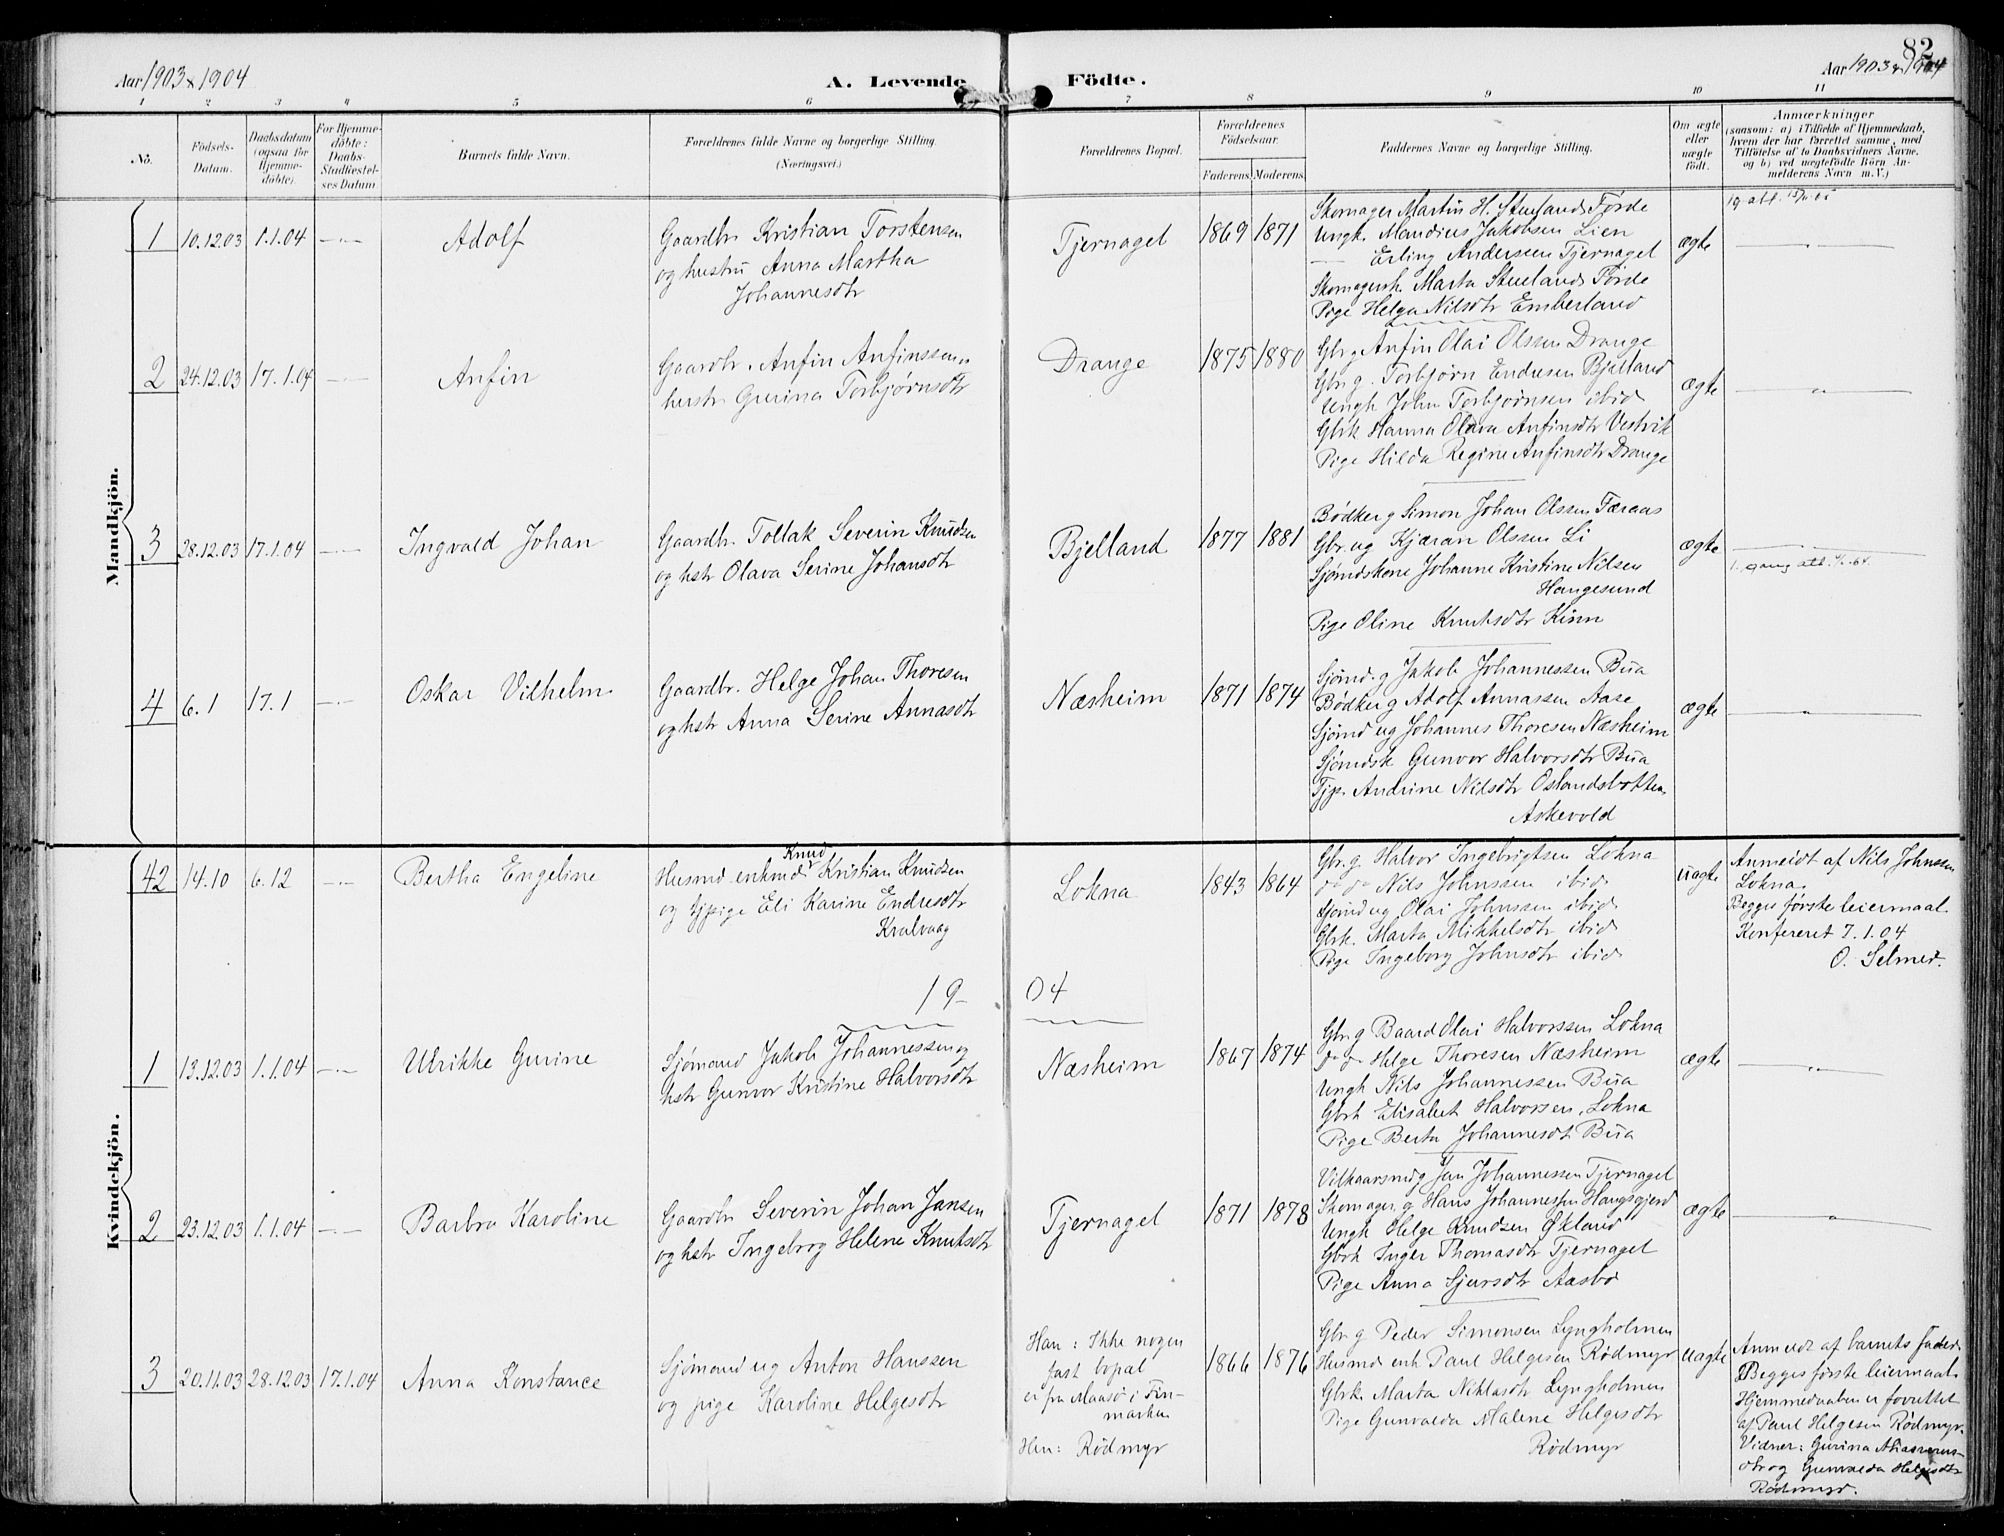 82
Aar 1903 & 1904
A. Levende Födte.
Aar 1903 & 1904
1 2 3 4 5 6 7 8 9 10 11
No.
Födsels-Datum.
Daabsdatum (ogsaa for Hjemme-döbte).
For Hjemme-döbte: Daabs-Stadfæstel-ses Datum
Barnets fulde Navn.
Forældrenes fulde Navne og borgerlige Stilling. (Næringsvei.)
Forældrenes Bopæl.
Forældrenes Födselsaar.
Faderens. Moderens.
Faddernes Navne og borgerlige Stilling.
Om ægte eller uægte födt.
Anmærkninger
(saasom: a) i Tilfælde af Hjemmedaab, hvem der har forrettet samme, med Tilföielse af to Daabsvidners Navne, og b) ved uægtefödte Börn An-melderens Navn m.V.)
Mandkjön.
1 10.12.03 1.1.04 Adolf
Gaardbr. Kristian Torstensen
og hustru Anna Martha
Johannesdtr
Tjernagel 1869 1871
Skomager Martin H. Stueland Førde
Ungk. Mandius Jakobsen Lien
Erling Anderssen Tjernagel
Skomagerk. Marta Stueland Førde
Pige Helga Nilsdtr Emberland
ægte
2 24.12.03 17.1.04 Anfin
Gaardbr. Anfin Anfinssen og
hustr Gurina Torbjørnsdtr
Drange 1875 1880
Gbr g Anfin Olai Olssen Drange
Gbr g. Torbjørn Endresen Bjelland
Ungk John Torbjørnsen ibid
Gbrk Hanna Olava Anfinsdtr Vestvik
Pige Hilda Regine Anfinsdtr Drange
ægte
3 28.12.03 17.1.04 Ingvald Johan
Gaardbr. Tollak Severin Knudsen
og hstr Olava Serine Johansdtr
Bjelland 1877 1881
Bødker g Simon Johan Olssen Færaas
Gbr. ug Kjæran Olssen Li
Sjømdskone Johanne Kristine Nilsen
Haugesund
Pige Oline Knutsdtr Kinn
ægte
4 6.1 17.1 Oskar Vilhelm
Gaardbr. Helge Johan Thoresen
og hstr Anna Serine Annasdtr
Næsheim 1871 1874
Sjømd. g Jakob Johannessen Bua
Bødker g Adolf Annassen Aase
Sjømd ug Johannes Thoresen Næsheim
Sjømdsk Gunvor Halvorsdtr Bua
Tjp. Andrine Nilsdtr Oslandsbotten,
Askevold
ægte
Kvindekjön.
42 14.10 6.12 Bertha Engeline
Knud
Husmd enkmd Kristian Knudsen
og tjpige Eli Karine Endresdtr
Kvalvaag
Lokna 1843 1864
Gbr. g. Halvor Ingebrigtsen Lokna
do do Nils Johnssen ibid
Sjømd ug Olai Johnssen ibid
Gbrk. Marta Mikkelsdtr ibid
Pige Ingeborg Johnsdtr ibid
uægte
Anmeldt af Nils Johnssen
Lokna.
Begges første leiermaal.
Konfereret 7.1.04
O. Selmer.
19 04
1 13.12.03 1.1.04 Ulrikke Gurine
Sjømand Jakob Johannessen og
hstr Gunvor Kristine Halvorsdtr
Næsheim 1867 1874
Gbr g Baard Olai Halvorssen Lokna
do do Helge Thoresen Næsheim
Ungk Nils Johannessen Bua
Gbrk Elisabet Halvorssen, Lokna
Pige Berta Johannesdtr Bua
ægte
2 23.12.03 1.1.04 Barbra Karoline
Gaardbr Severin Johan Jansen
og hstr Ingeborg Helene Knutsdtr
Tjernagel 1871 1878
Vilkaarsmd g Jan Johannessen Tjernagel
Skomager, g Hans Johannessen Haugsgjerd
Ungk Helge Knudsen Økland
Gbrk Inger Thomasdtr Tjernagel
Pige Anna Sjursdtr Aasbø
ægte
3 20.11.03 28.12.03 17.1.04 Anna Konstance
Sjømand ug Anton Hanssen
og pige Karoline Helgesdtr
Han: Ikke nogen
fast bopæl
er fra Maasø i Fin-
marken
Hun: Rødmyr
1866 1876
Gbr g Peder Simonsen Lyngholmen
Husmd enk Paul Helgesen Rødmyr
Gbrk. Marta Niklasdtr Lyngholmen
Pige Gunvalda Malene Helgesdtr
Rødmyr
uægte
Anmeldt af barnets fader.
Begges første leiermaal.
Hjemmedaaben er forrettet
af Paul Helgesen Rødmyr.
Vidner: Gurina
dtr og Gunvalda Helgesdtr
Rødmyr.